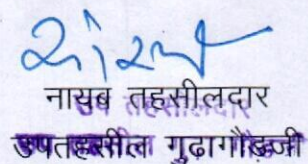 नायब तहसीलदार
उपतहसील गुढागौडजी